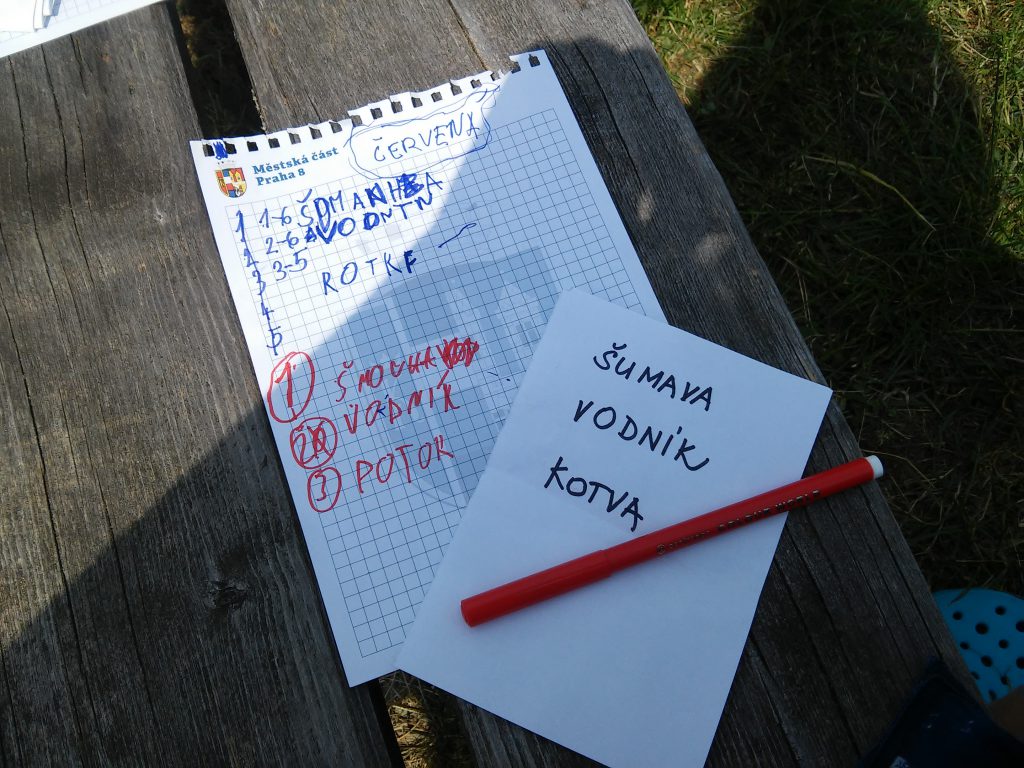 Městská část
Praha 8
ČERVENÁ
1 1-6
2 2-6
3 3-5
ROTKF
4
1 ŠMOUHA
2 VODNÍK
3 POTOK
ŠUMAVA
VODNÍK
KOTVA